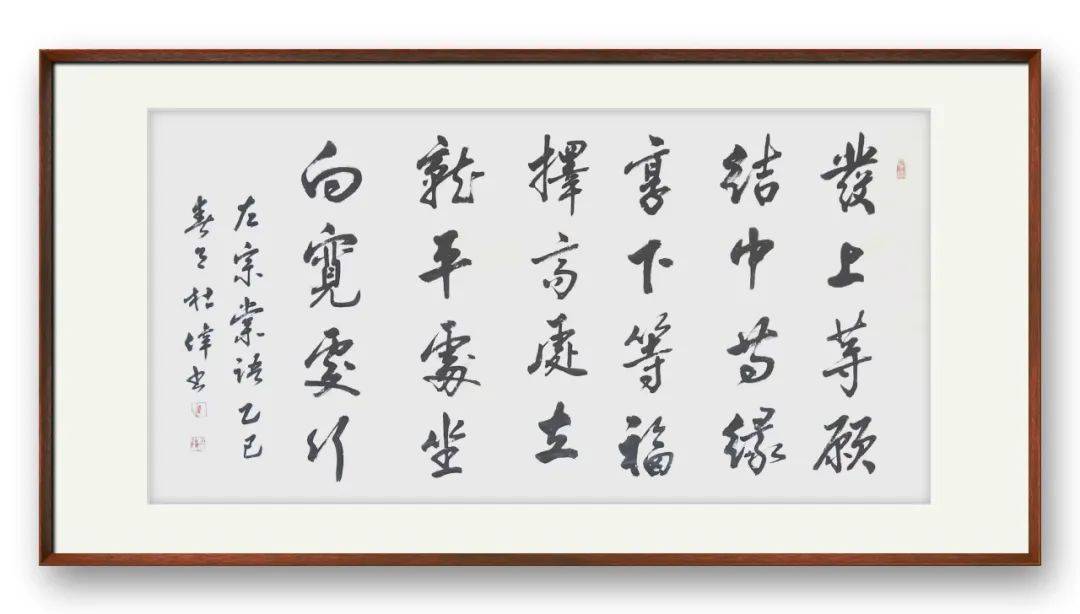 發上等願
結中等緣
享下等福
擇高處立
就平處坐
向寬處行
左宗棠語乙巳
春杜偉书